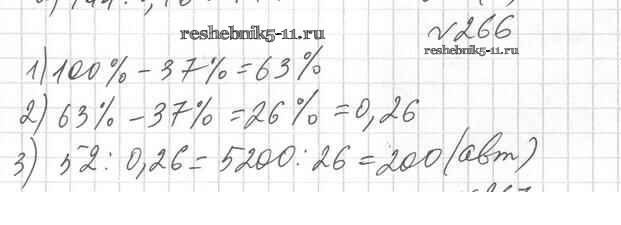 reshebnik5-11.ru
№266
reshebnik5-11.ru
1) 100% - 37% = 63%
2) 63% - 37% = 26% = 0,26
3) 52 : 0,26 = 5200 : 26 = 200 (авт)